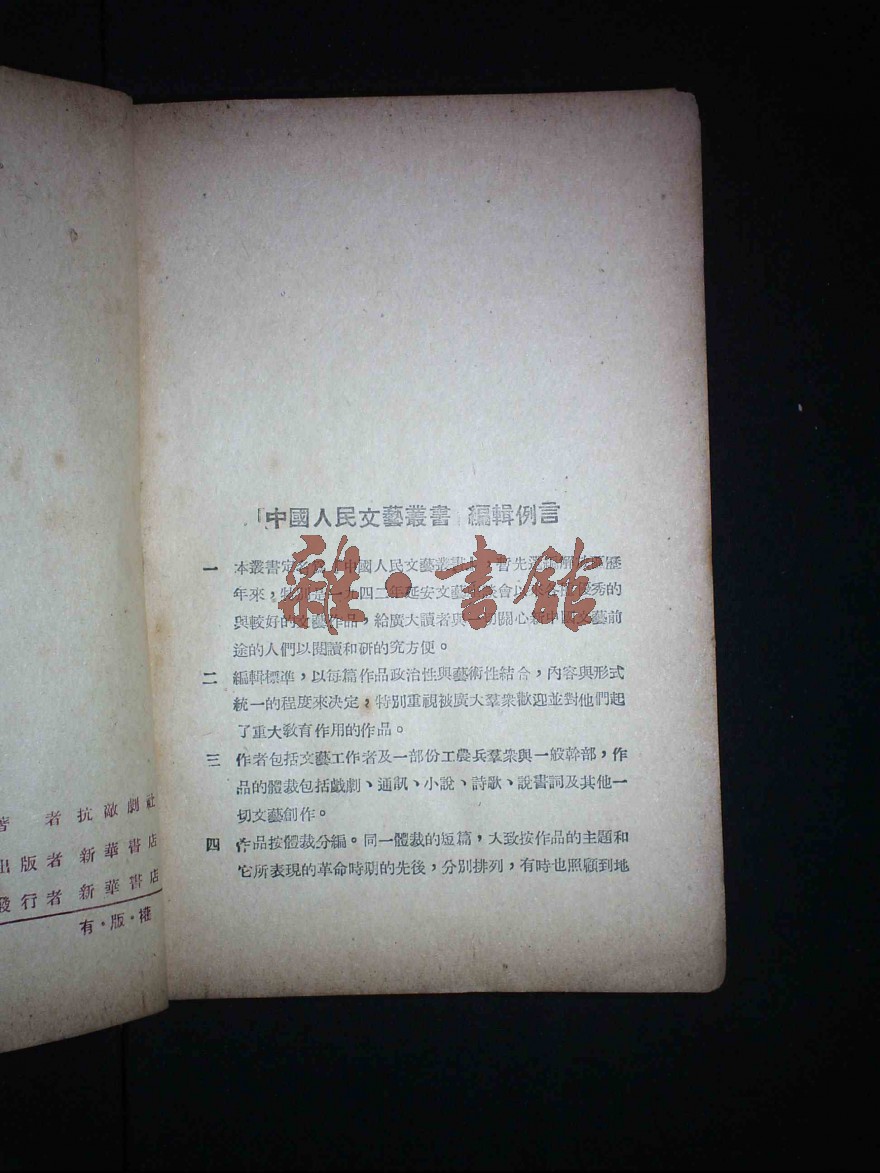 「中國人民文藝叢書」編輯例言
一 本叢書定名為「中國人民文藝叢書」，暫先選編解放區歷
年來，特別是一九四二年延安文藝座談會以來各種優秀的
與較好的文藝作品，給廣大讀者與一切關心新中國文藝前
途的人們以閱讀和研的究方便。
二 編輯標準，以每篇作品政治性與藝術性結合，內容與形式
統一的程度來決定，特別重視被廣大羣衆歡迎並對他們起
了重大敎育作用的作品。
三 作者包括文藝工作者及一部份工農兵羣衆與一般幹部，作
品的體裁包括戲劇、通訊、小說、詩歌、說書詞及其他一
切文藝創作。
四 作品按體裁分編。同一體裁的短篇，大致按作品的主題和
它所表現的革命時期的先後，分別排列，有時也照顧到地
著 者 抗敵劇社
出版者 新華書店
發行者 新華書店
有·版·權
雜·書館